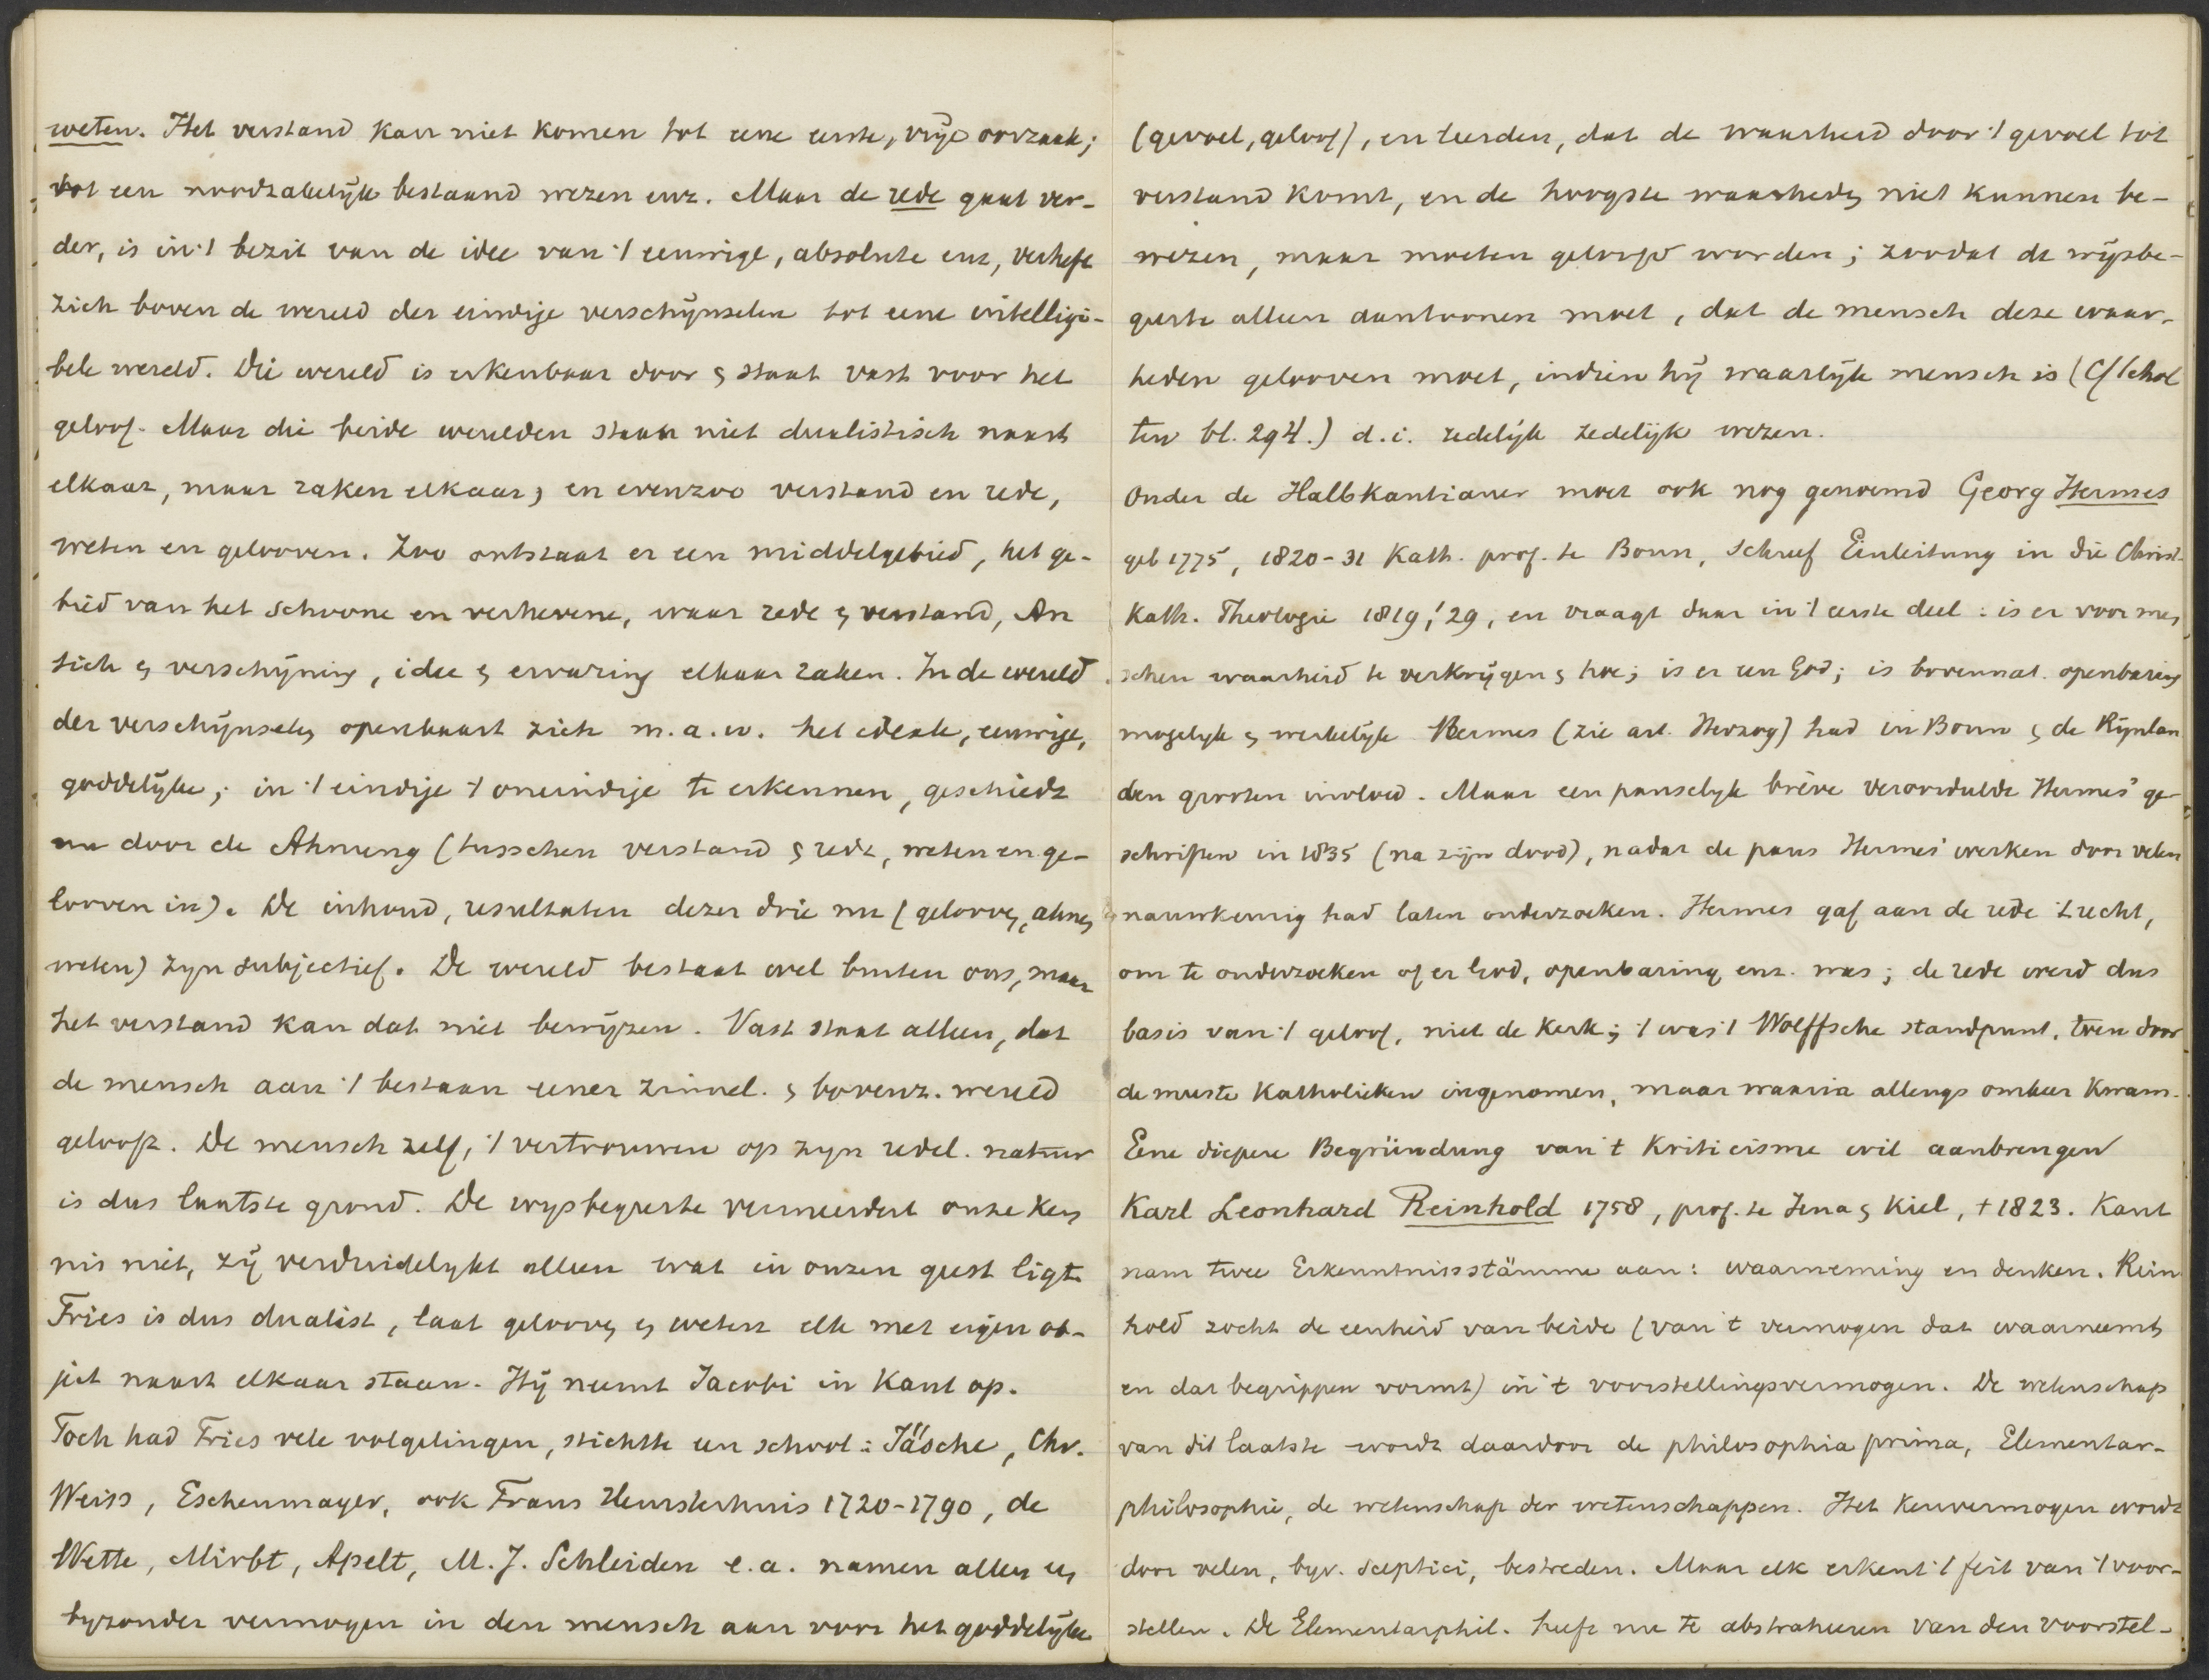 weten. Het verstand kan niet komen tot eene eerste, vrije oorzaak;
tot een noodzakelijk bestaand wezen enz. Maar de rede gaat ver-
der, is in 't bezit van de idee van 't eeuwige, absolute enz, verheft
zich boven de wereld der eindige verschijnselen tot eene intelligi-
bele wereld. Die wereld is erkenbaar door & staat vast voor het
geloof. Maar die beide werelden staan niet dualistisch naast
elkaar, maar raken elkaar, en evenzoo verstand en rede,
weten en gelooven. Zoo ontstaat er een middelgebied, het ge-
bied van het schoone en verhevene, waar rede & verstand, An
sich & verschijning, idee & ervaring elkaar raken. In de wereld
der verschijnselen openbaart zich m.a.w. het ideale, eeuwige,
goddelijke; in 't eindige 't oneindige te erkennen, geschiedt
nu door de Ahnung (tusschen verstand & rede, weten en ge-
looven in). De inhoud, resultaten dezer drie nu (gelooven, ahnen,
weten) zyn subjectief. De wereld bestaat wel buiten ons, maar
het verstand kan dat niet bewijzen. Vast staat alleen, dat
de mensch aan 't bestaan eener zinnel. & bovenz. wereld
gelooft. De mensch zelf, 't vertrouwen op zyn redel. natuur
is dus laatste grond. De wysbegeerte vermeerdert onze ken
nis niet, zij verduidelykt alleen wat in onzen geest ligt.
Fries is dus dualist, laat gelooven & weten elk met eigen ob-
ject naast elkaar staan. Hij neemt Jacobi in Kant op.
Toch had Fries vele volgelingen, stichtte een school: Jäsche, Chr.
Weiss, Eschenmayer, ook Frans Hemsterhuis 1720-1790, de
Wette, Mirbt, Apelt, M. J. Schleiden e.a. namen allen een
byzonder vermogen in den mensch aan voor het goddelijke
(gevoel, geloof), en leerden, dat de waarheid door 't gevoel tot
verstand komt, en de hoogste waarheden niet kunnen be-
wezen, maar moeten geloofd worden; zoodat de wijsbe-
geerte alleen aantoonen moet, dat de mensch deze waar-
heden gelooven moet, indien hij waarlijk mensch is (Cf Schol
ten bl. 294.) d.i. redelijk zedelijk wezen.
Onder de Halbkantianer moet ook nog genoemd Georg Hermes
geb 1775, 1820-31 Kath. prof. te Bonn, schreef Einleitung in die Christ-
Kath. Theologie 1819, '29, en vraagt daar in 't eerste deel: is er voor men
schen waarheid te verkrijgen & hoe; is er een God; is bovennat. openbaring
mogelyk & werkelijk Hermes (zie art. Herzog) had in Bonn & de Rijnlan
den grooten invloed. Maar een pauselyk brève veroordeelde Hermes' ge-
schriften in 1835 (na zijn dood), nadat de paus Hermes' werken door velen
nauwkeurig had laten onderzoeken. Hermes gaf aan de rede 't recht,
om te onderzoeken of er God, openbaring enz. was; de rede werd dus
basis van 't geloof, niet de Kerk; 't was 't Wolffsche standpunt, toen door
de meeste Katholieken ingenomen, maar waarin allengs omkeer kwam.
Eene diepere Begründung van 't Kriticisme wil aanbrengen
Karl Leonhard Reinhold 1758, prof. te Jena & Kiel, † 1823. Kant
nam twee Erkenntnissstämme aan: waarneming en denken. Rein
hold zocht de eenheid van beide (van 't vermogen dat waarneemt
en dat begrippen vormt) in 't voorstellingsvermogen. De wetenschap
van dit laatste wordt daardoor de philosophia prima, Elementar-
philosophie, de wetenschap der wetenschappen. Het Kenvermogen wordt
door velen, byv. sceptici, bestreden. Maar elk erkent 't feit van 't voor-
stellen. De Elementarphil. heeft nu te abstraheeren van den voorstel-